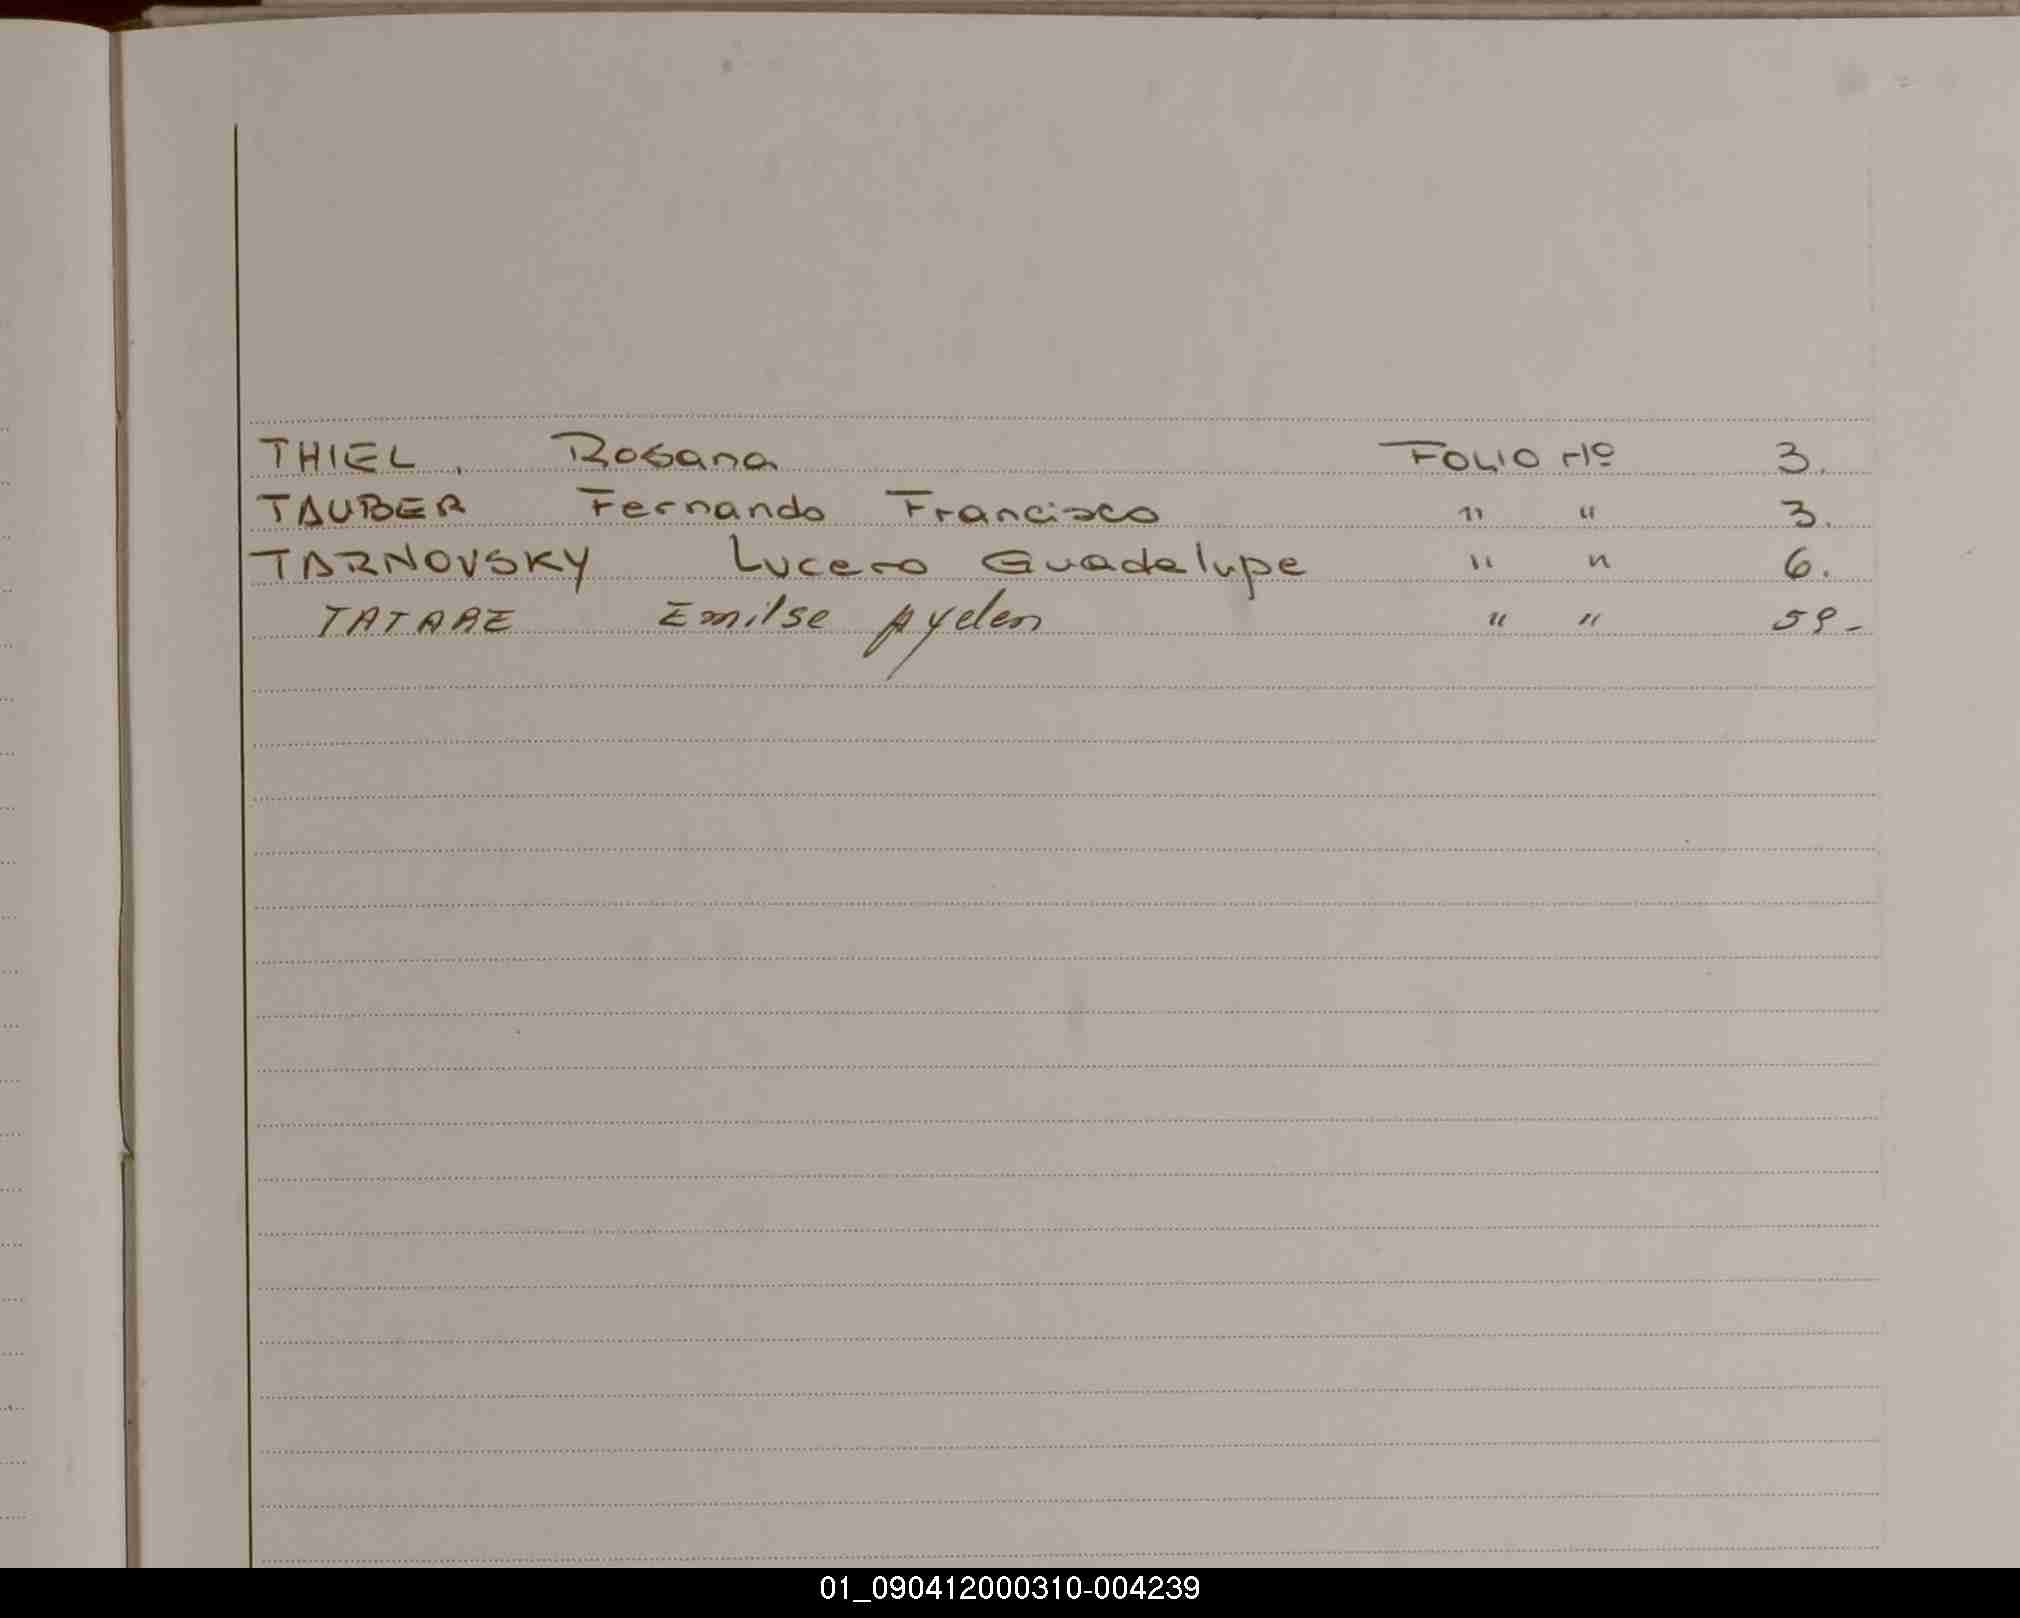 THIEL, Rosana FOLIO Nº 3.
TAUBER Fernando Francisco " " 3.
TARNOVSKY Lucero Guadalupe " " 6.
TATARE Emilse " " 59-
01_090412000310-004239